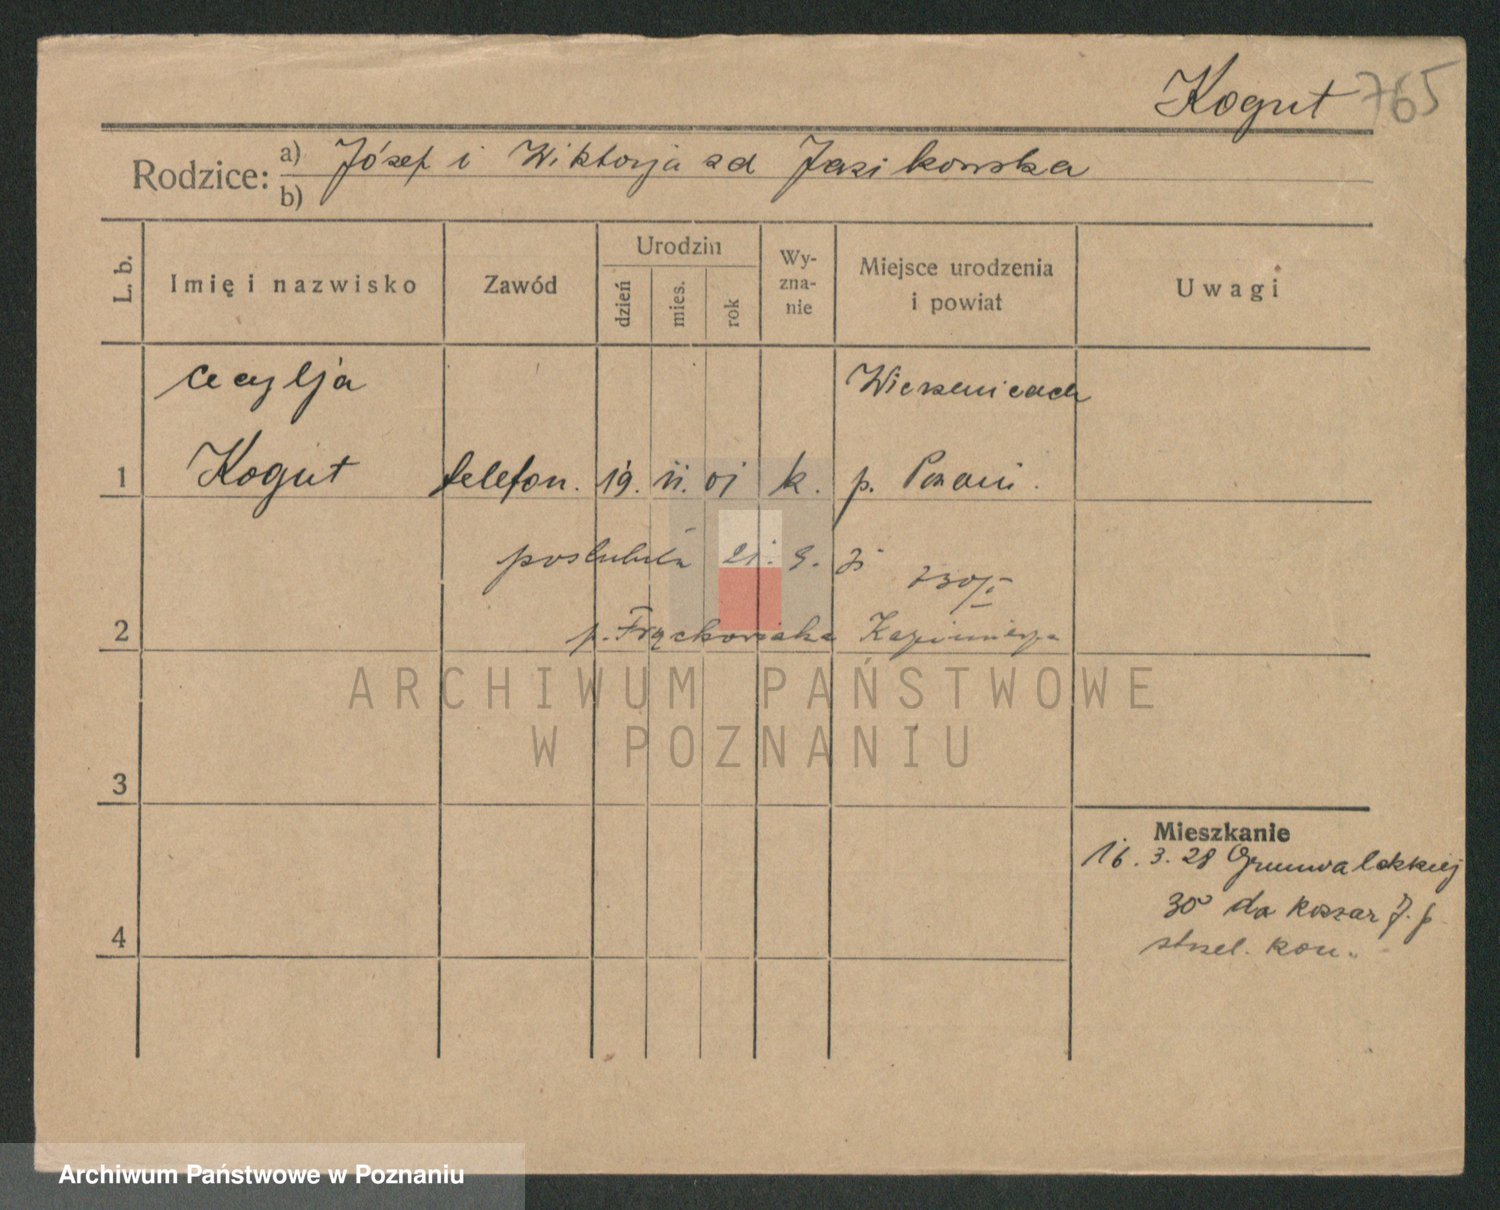 Kogut 765
Rodzice: a) Józef i Wiktorja zd Jasikowska
b)
L. b. Imię i nazwisko Zawód Urodzin dzień mies. rok Wy-zna-nie Miejsce urodzenia i powiat Uwagi
Cecylja Wierzenicach
1 Kogut telefon. 19. 11. 01 k. p. Poznań.
poślubiła 21. 9. 31
2 p. Frąckowiaka Kazimierza
ARCHIWUM PAŃSTWOWE
W POZNANIU
3
Mieszkanie
16. 3. 28 Grunwaldzkiej
30 do koszar 7. p.
4 strzel. kon.
Archiwum Państwowe w Poznaniu